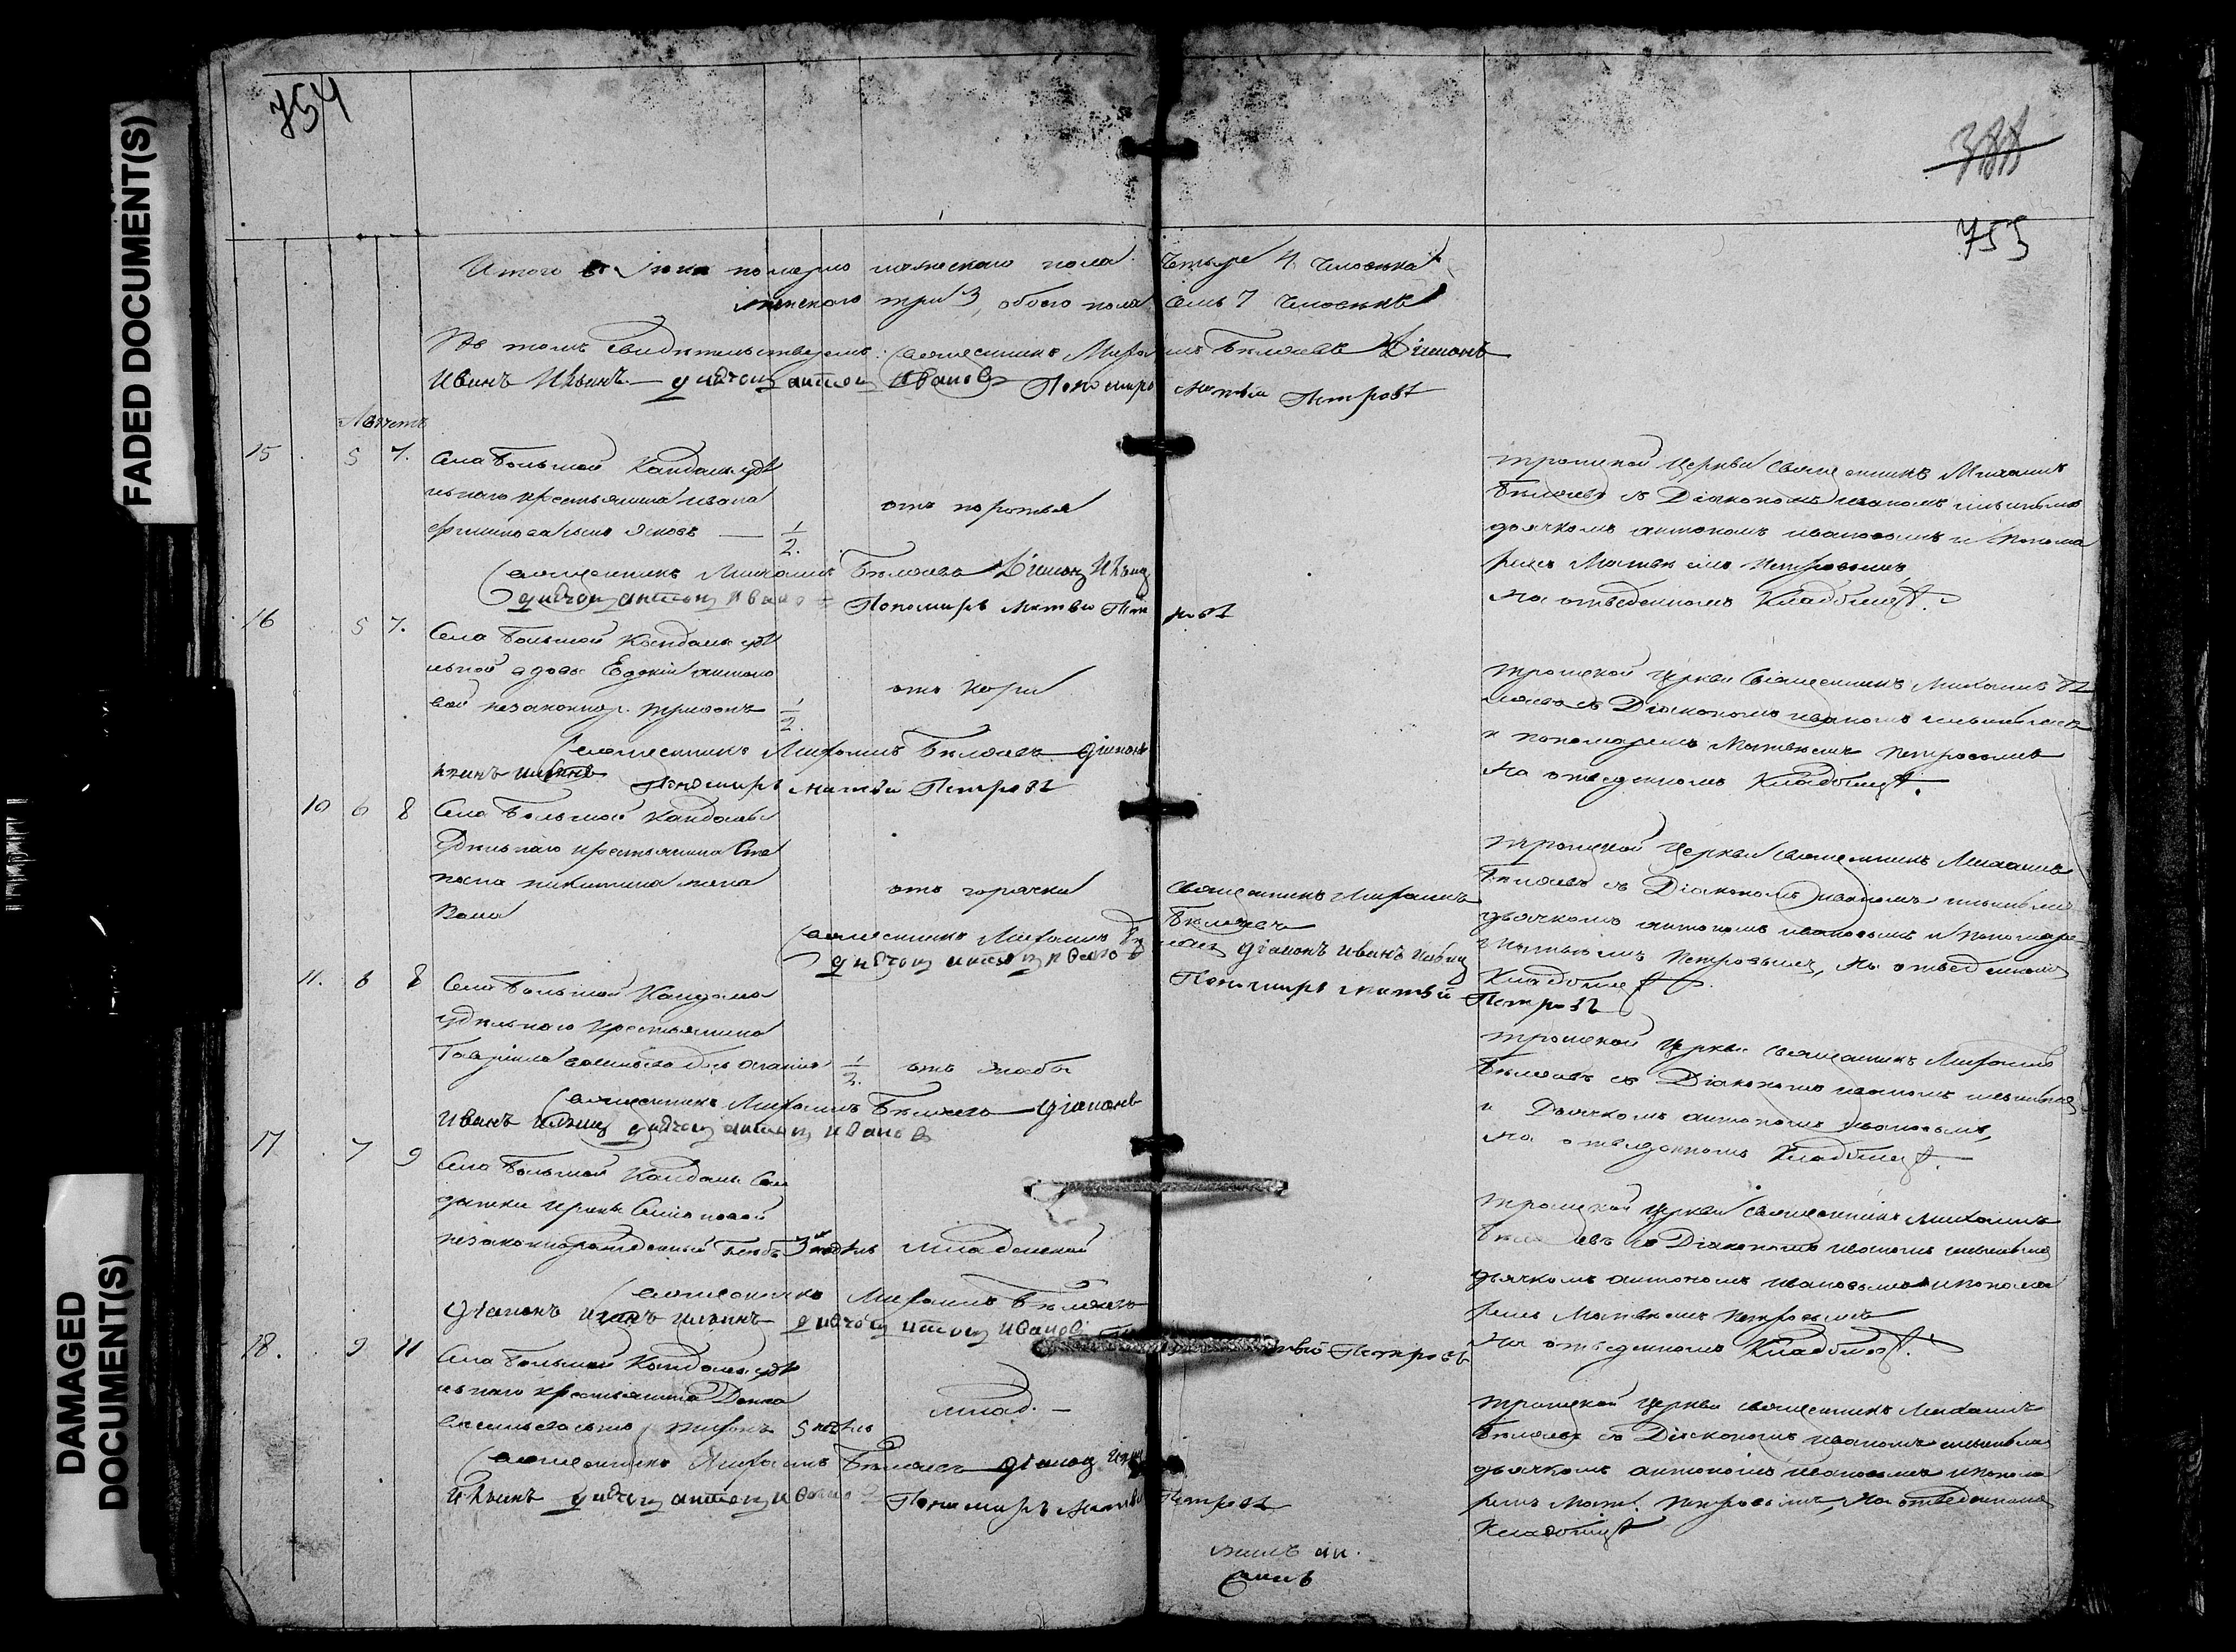 FADED DOCUMENT(S)
DAMAGED
DOCUMENT(S)
754
388
755
Итого в июне померло мужескаго пола четыре 4 человѣка
женскаго три 3, обоего пола семь 7 человѣкъ
Въ томъ свидѣтельствуемъ: Священникъ Михаилъ Бѣляевъ Діаконъ
Иванъ Ильинъ дьячокъ антонъ Ивановъ Пономарь Матвѣй Петровъ
15 5 7.
Села Большой Кандалы удѣ
льнаго крестьянина Ивана
1/2.
Священникъ Михаилъ Бѣляевъ Діаконъ Ильинъ
дьячокъ антонъ Ивановъ Пономарь Матвѣй Петровъ
троицкой Церкви Священникъ Михаилъ
Бѣляевъ съ Діакономъ иваномъ ильинымъ
дьячкомъ антономъ ивановымъ и понома
ремъ Матвѣемъ Петровымъ
На отведенномъ Кладбищѣ.
16 5 7.
Села Большой Кандалы удѣ
льной вдовы Евдокіи антоно
вой незаконнор. трифонъ 1/2.
отъ кори
Священникъ Михаилъ Бѣляевъ діаконъ
иванъ ильинъ Пономарь Матвѣй Петровъ
троицкой Церкви Священникъ Михаилъ Бѣ
ляевъ съ Діакономъ иваномъ ильинымъ
и пономаремъ Матвѣемъ Петровымъ
На отведенномъ Кладбищѣ.
10 6 8
Села Большой Кандалы
Удѣльнаго крестьянина Сте
пана никитина жена
отъ горячки
Священникъ Михаилъ
Бѣляевъ
Священникъ Михаилъ Бѣляевъ діаконъ иванъ ильинъ
дьячокъ антонъ Ивановъ Пономарь Матвѣй Петровъ
троицкой Церкви Священникъ Михаилъ
Бѣляевъ съ Діакономъ иваномъ ильинымъ
дьячкомъ антономъ ивановымъ и пономаре
матвѣемъ Петровымъ, На отведенномъ
Кладбищѣ.
11. 6 8
Села Большой Кандалы
удѣльнаго крестьянина
Гавріила васильева дочь 1/2.
Священникъ Михаилъ Бѣляевъ діаконъ
Иванъ Ильинъ дьячокъ антонъ Ивановъ
троицкой Церкви Священникъ Михаилъ
Бѣляевъ съ Діакономъ иваномъ ильинымъ
и Дьячкомъ антономъ ивановымъ,
На отведенномъ Кладбищѣ.
17 7 9
Села Большой Кандалы Сол
датки Ирины Семеновой
незаконнорожденный Глѣбъ 3 недѣль младенской
Священникъ Михаилъ Бѣляевъ
діаконъ иванъ ильинъ дьячокъ антонъ Ивановъ
Петровъ
троицкой Церкви Священникъ Михаилъ
Бѣляевъ съ Діакономъ иваномъ ильинымъ
дьячкомъ антономъ ивановымъ и понома
ремъ Матвѣемъ Петровымъ
На отведенномъ Кладбищѣ.
18. 9 11
Села Большой Кандалы удѣ
льнаго крестьянина
трифонъ 5 недѣль
млад. —
Священникъ Михаилъ Бѣляевъ діаконъ Иванъ
Ильинъ дьячокъ антонъ Ивановъ Пономарь Матвѣй Петровъ
троицкой Церкви Священникъ Михаилъ
Бѣляевъ съ Діакономъ иваномъ ильинымъ
дьячкомъ антономъ ивановымъ и понома
ремъ Матв. Петровымъ, На отведенномъ
Кладбищѣ